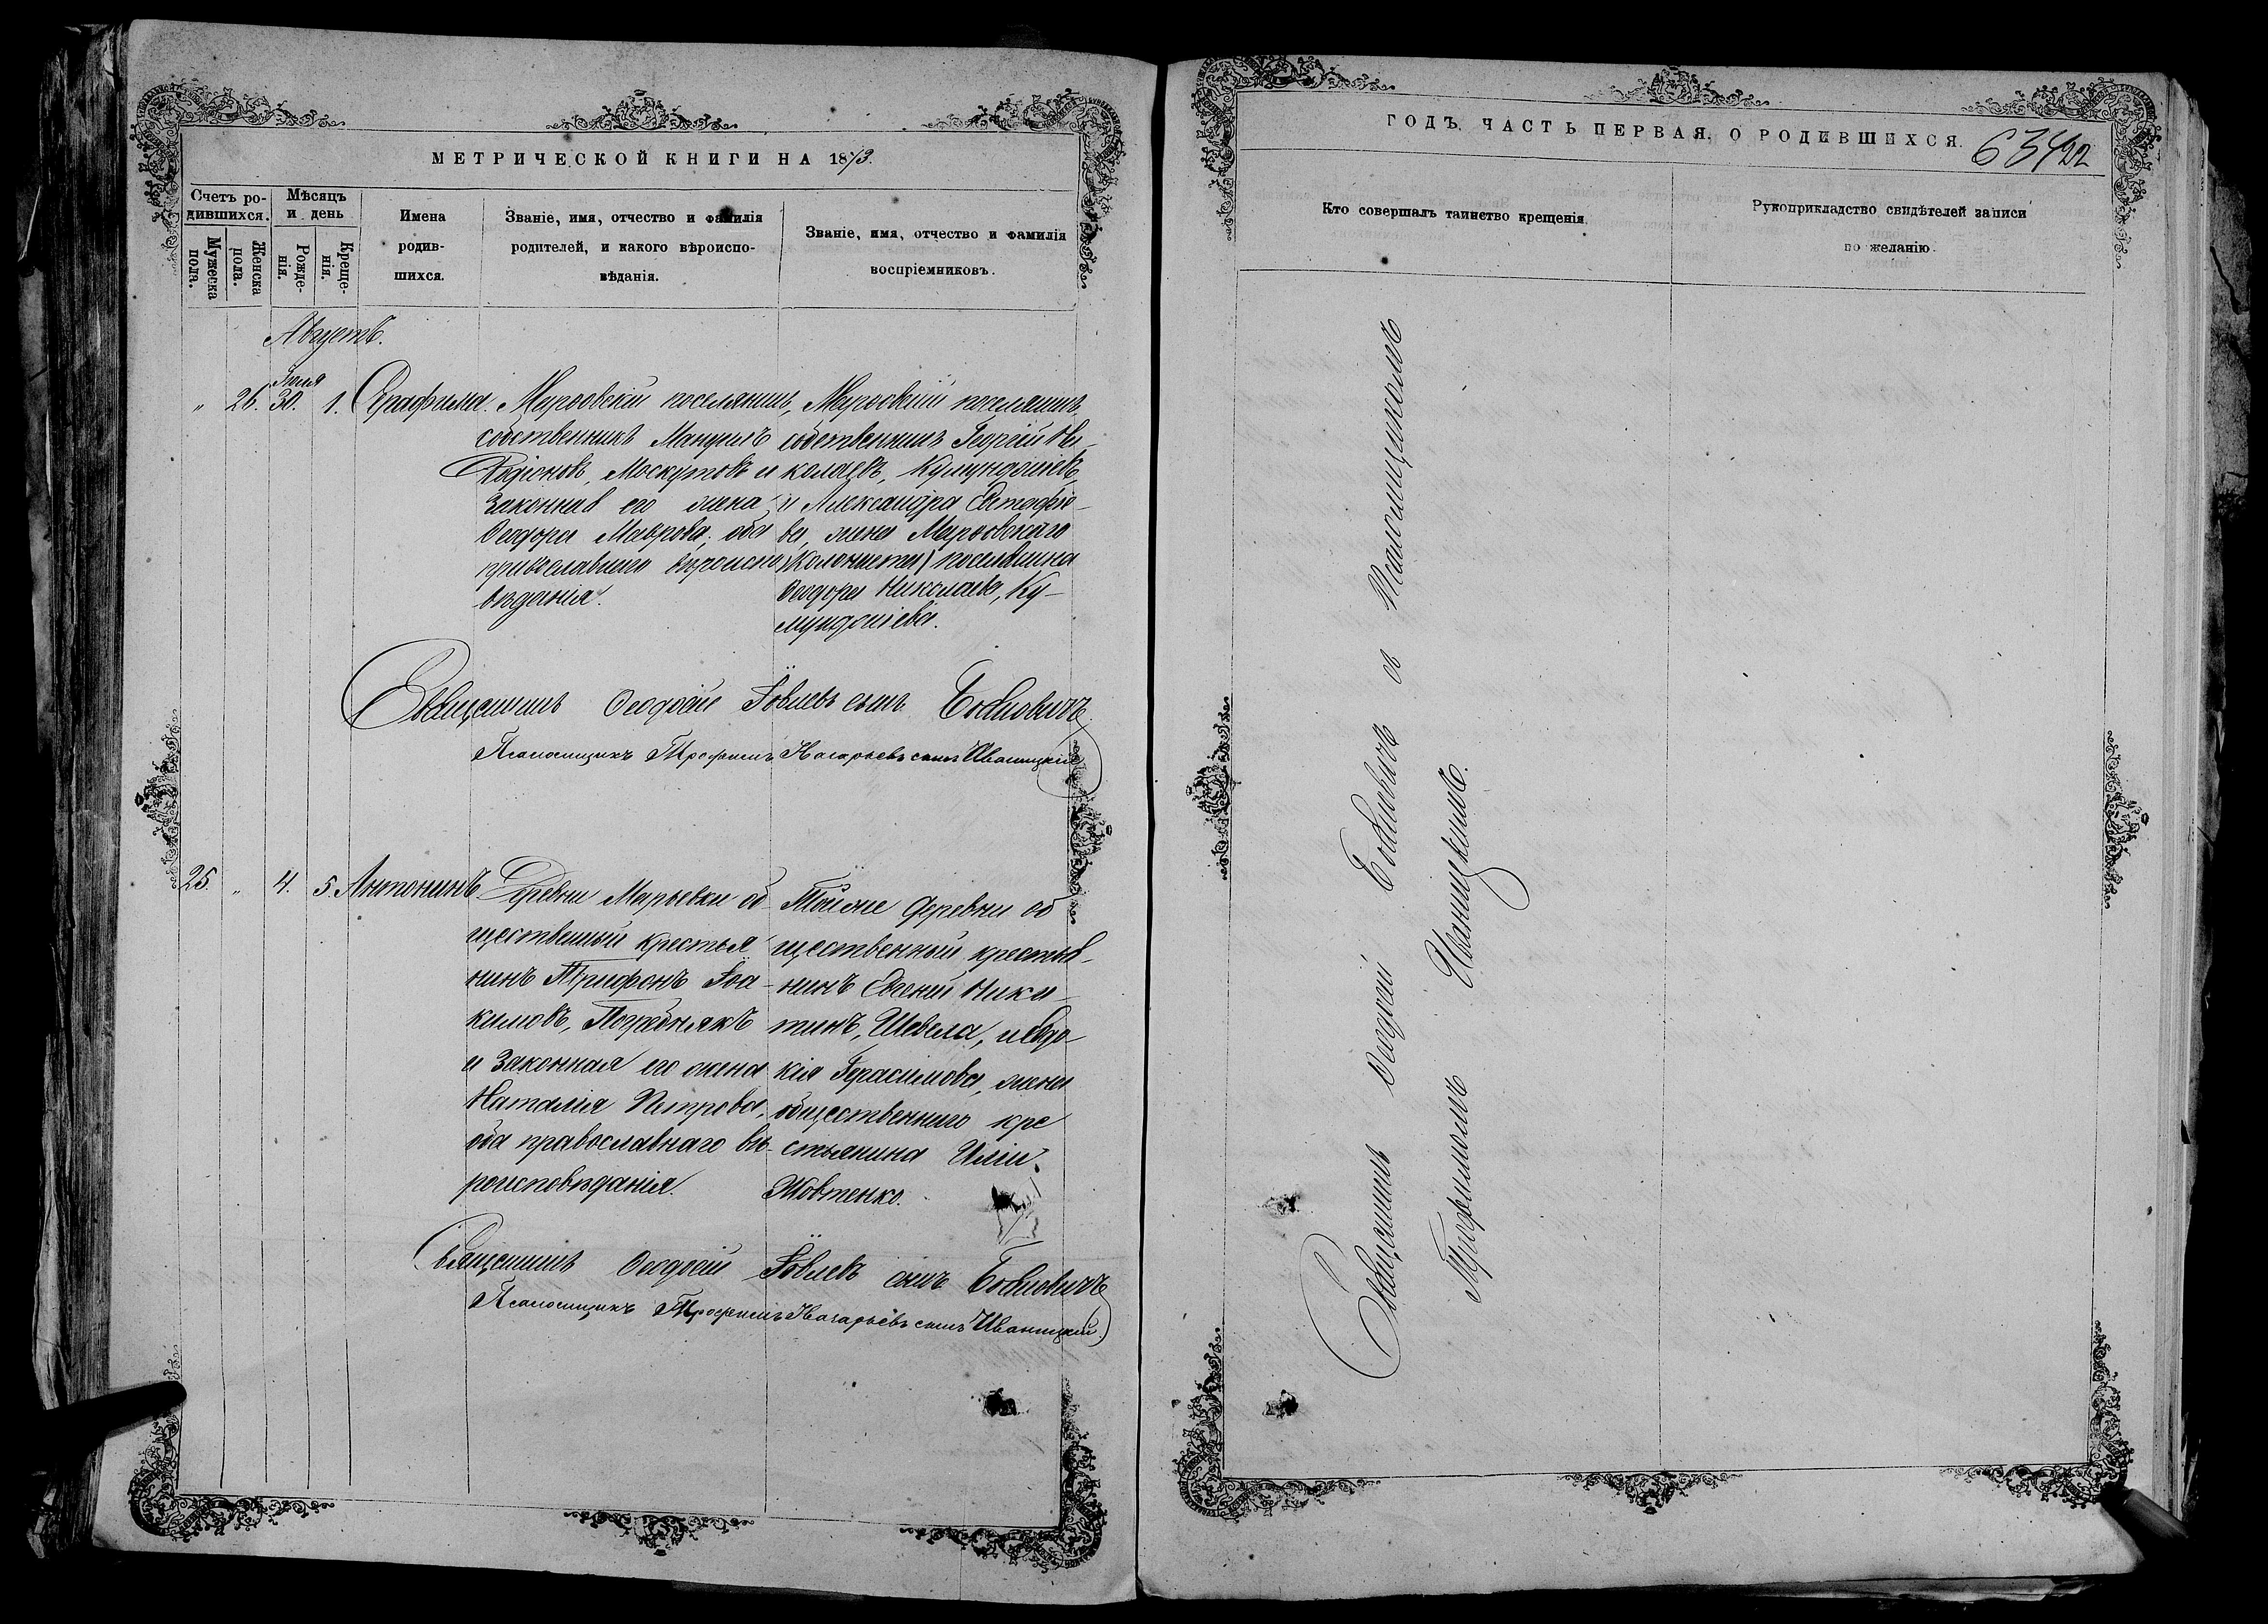 МЕТРИЧЕСКОЙ КНИГИ НА 1873.
Счетъ ро-
дившихся.
Мужеска
пола.
Женска
пола.
Мѣсяцъ
и день
Рожде-
нія.
Креще-
нія.
Имена
родив-
шихся.
Званіе, имя, отчество и фамилія
родителей, и какого вѣроиспо-
вѣданія.
Званіе, имя, отчество и фамилія
воспріемниковъ.
Августъ.
Іюля
" 26. 30. 1. Серафима.
поселянинъ,
собственникъ Мануилъ
Родіоновъ, Москутовъ и
законная его жена
Ѳеодора Маврова, оба
православнаго вѣроиспо
вѣданія.
поселянинъ
собственникъ Георгій Ни-
колаевъ,
и Александра Евстафіе-
ва, жена
(Колониста) поселянина
Ѳеодора Николаева, Ку-
Священникъ Ѳеодосій Іовлевъ сынъ
Псаломщикъ Трофимъ Назарьевъ сынъ Иваницкій
25. " 4. 5. Антонинъ
Деревни Марьевки об-
щественный крестья
нинъ Трифонъ Іоа-
кимовъ, Погребнякъ
и законная его жена
Наталія Петрова,
оба православнаго вѣ-
роисповѣданія.
Той же деревни об
щественный крестья-
нинъ Евгеній Ники-
тинъ, Шевела, и Евдо-
кія Герасимова, жена
общественнаго кре
стьянина Иліи
Жовтенко.
Священникъ Ѳеодосій Іовлевъ сынъ
Псаломщикъ Трофимъ Назарьевъ сынъ Иваницкій
ГОДЪ. ЧАСТЬ ПЕРВАЯ. О РОДИВШИХСЯ.
Кто совершалъ таинство крещенія
Рукоприкладство свидѣтелей записи
по желанію.
Священникъ Ѳеодосій съ Псаломщикомъ
Трофимомъ Иваницкимъ.